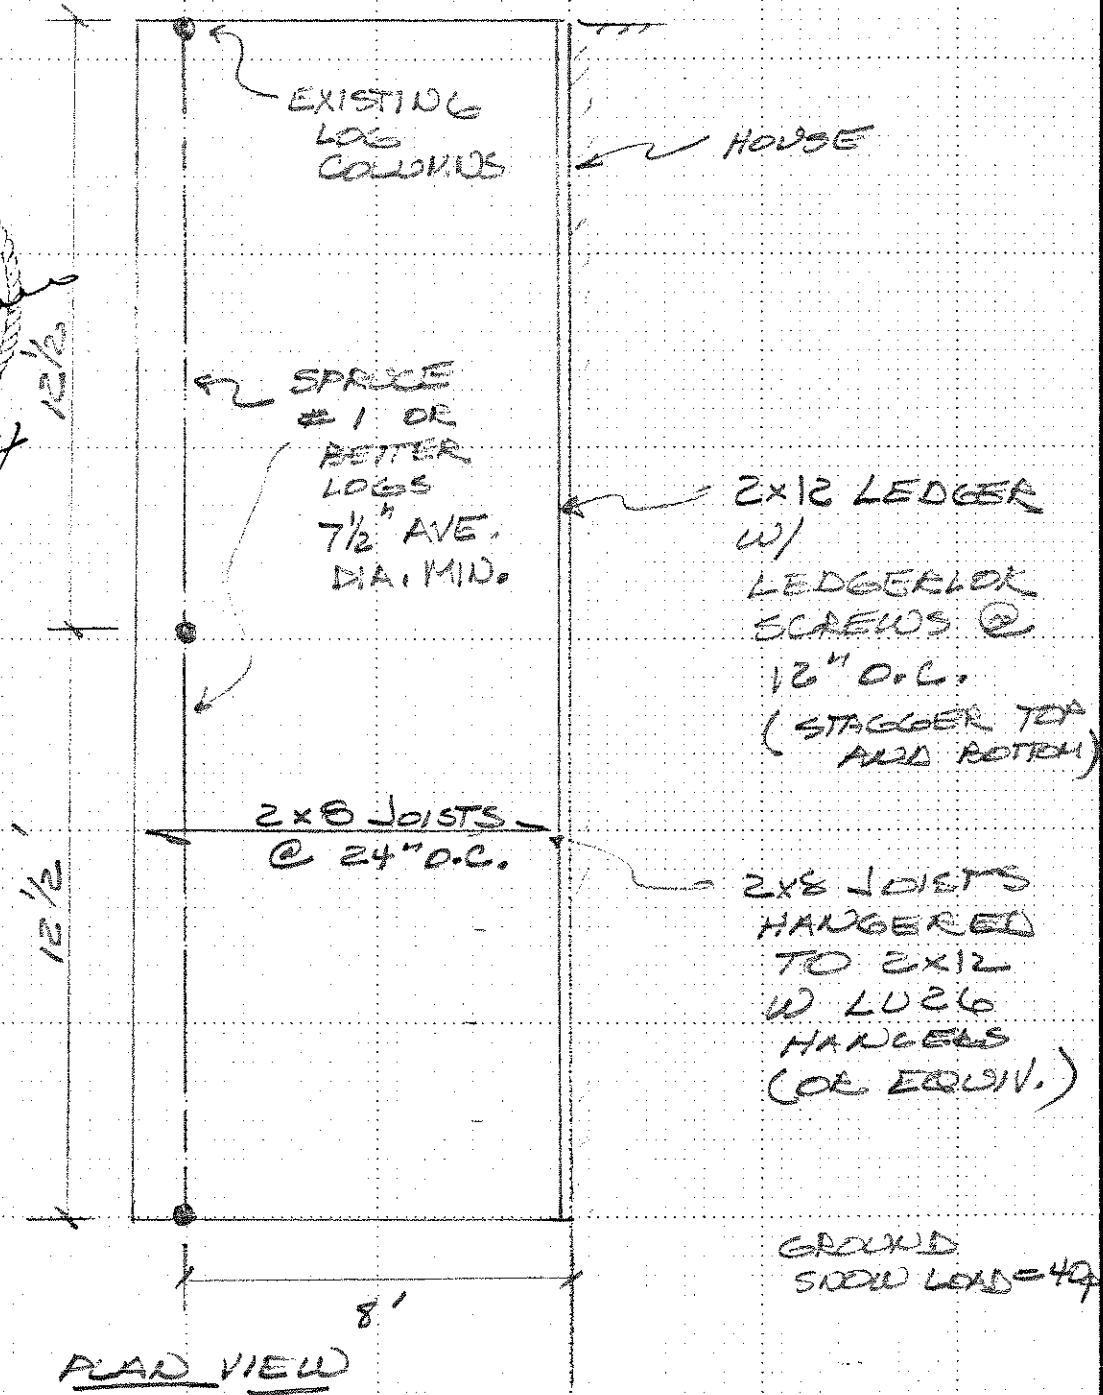 EXISTING
LOG
COLUMNS
HOUSE
12 1/2
SPRUCE
# 1 OR
BETTER
LOGS
7 1/2" AVE.
DIA. MIN.
2x12 LEDGER
W/
LEDGERLOK
SCREWS @
12" O.C.
(STAGGER TOP
AND BOTTOM)
2x8 JOISTS
@ 24" O.C.
12 1/2'
2x8 JOISTS
HANGERED
TO 2x12
W LU26
HANGERS
(OR EQUIV.)
GROUND
SNOW LOAD = 40p
8'
PLAN VIEW